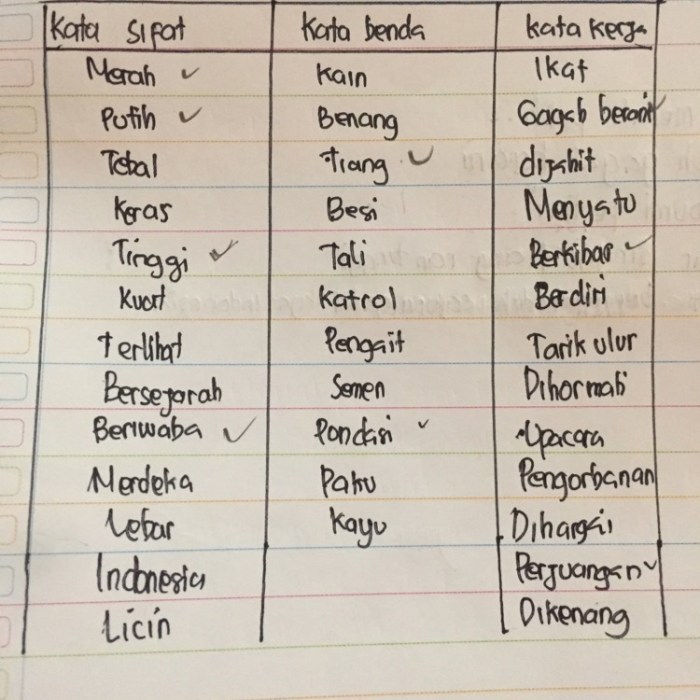 Kata Sifat Kata benda Kata Kerja
Merah Kain Ikat
Putih Benang Gagah berani
Tebal Tiang dijahit
Keras Besi Menyatu
Tinggi Tali Berkibar
Kuat Katrol Berdiri
Terlihat Pengait Tarik ulur
Bersejarah Semen Dihormati
Beriwaba Pondasi Upacara
Merdeka Paku Pengorbanan
Lebar Kayu Dihargai
Indonesia Perjuangan
Licin Dikenang